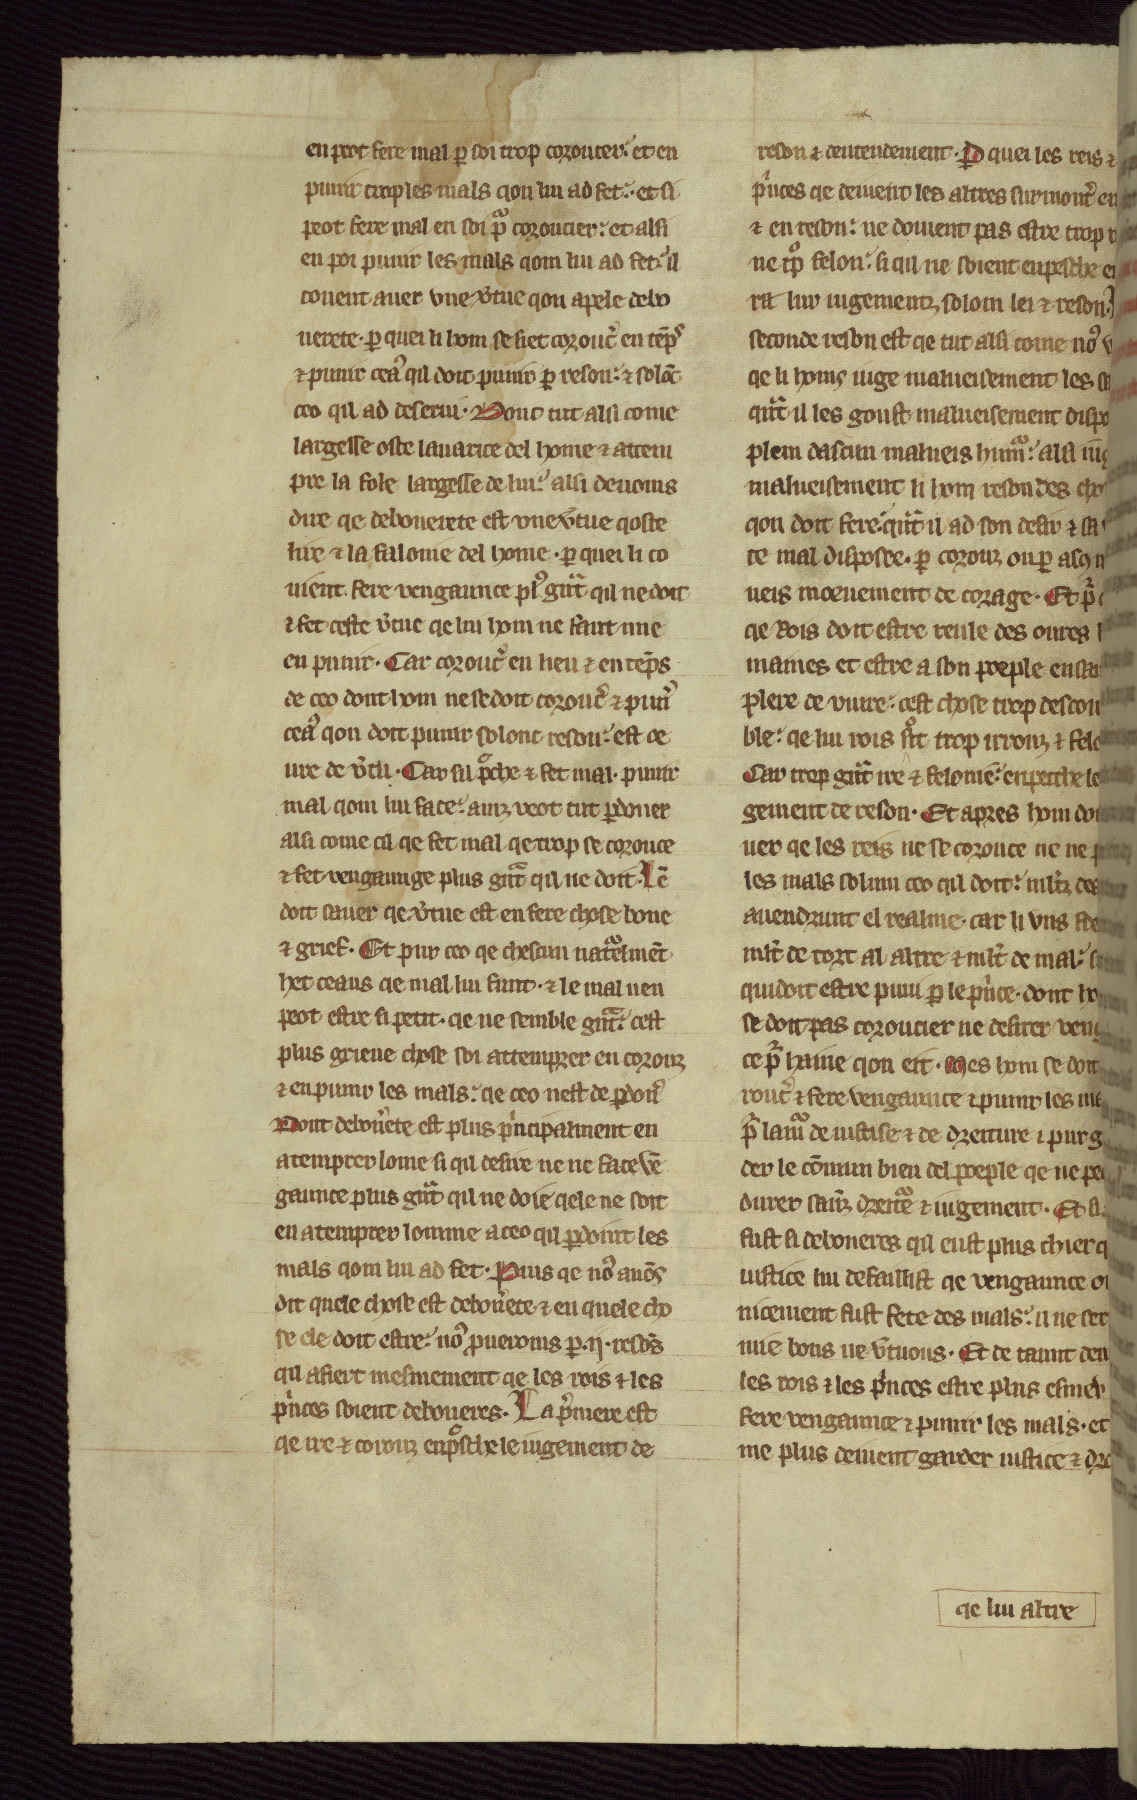 en peot fere mal p̲ soi trop coroucer. et en
punir trop les mals qon lui ad fet. et si
peot fere mal en soi poͣ coroucier. et alsi
en poi punir les mals qom lui ad fet. il
couent auer vne v̾tue qon apele debo
nerete. p̲ quei li hom se siet corouc̾ en tēp̾s
⁊ punir ceaͧ qil doit punir p̲ reson. ⁊ solōc
ceo qil ad deserui. Dont tut alsi come
largesse oste lauarice del home ⁊ attem
pre la fole largesse de lui. alsi deuoms
dire qe debonerete est vne v̾tue qoste
lire ⁊ la falonie del home. p̲ quei li co
uient fere vengaunce plꝰ gͣnt qil ne doit
⁊ fet ceste v̾tue qe lui hom ne faut mie
en punir. Car corouc̾ en lieu ⁊ en tēps
de ceo dont hom ne se doit corouc̾ ⁊ pun̾
ceaͧ qon doit punir solonc reson. est oe
ure de v̾tu. Car sil pͦche ⁊ fet mal. punir
mal qom lui face. ainz veot tut p̲doner
alsi come cil qe fet mal qe trop se corouce
⁊ fet vengaunge plus gͣnt qil ne doit. Lē
doit sauer qe v̾tue est en fere chose bone
⁊ grief. Et pur ceo qe chescun natͣelmēt
het ceaus qe mal lui funt. ⁊ le mal nen
peot estre si petit. qe ne semble gͣnt. cest
plus grieue chose soi attemprer en corouz
⁊ en punir les mals. qe ceo nest de p̲don̾
Dont debon̾ete est plus pͥncipalment en
atemprer lome si qil desire ne ne face vē
gaunce plus gͣnt qil ne doie qele ne soit
en atemprer lomme a ceo qil p̲doint les
mals qom lui ad fet. Puis qe noꝰ auōs
dit quele chose est debon̾ete ⁊ en quele cho
se ele doit estre. noꝰ ꝓueroms p̲ .ij. resōs
qil afiert mesmement qe les rois ⁊ les
pͥnces soient deboneres. La pͥmere est
qe ire ⁊ corouz enpͦsche le iugement de
reson ⁊ dentendement. P̲ quei les reis ⁊
pͥnces qe deiuent les altres surmont̾ en
⁊ en reson. ne doiuent pas estre trop
ne tͦp felon. si qil ne soient enpesche
ra lur iugementz solom lei ⁊ reson.
seconde reson est qe tut alsi come noꝰ
qe li homs iuge malueisement les
qͣnt il les goust malueisement dispo
plein dascun malueis humͦ. alsi iug
malueisement li hom reson des cho
qon doit fere qͣnt il ad son desir ⁊ sa
te mal disposee. p̲ corouz ou p̲ alqn
ueis moeuement de corage. Et pͥ
qe Rois doit estre reule des oures
maines et estre a son poeple ensa
plere de viure. cest chose trop descou
ble. qe lui rois sͦit trop irrouz ⁊ felo
Car trop gͣnt ire ⁊ felonie. enpesche le
gement de reson. Et apres hom doi
uer qe les reis ne se corouce ne ne p
les mals solum ceo qil doit. mltz des
auendrunt el realme. car li vns fe
mlt̾ de tort al altre ⁊ mlt̾ de mal.
qui doit estre puni p̲ le pͥnce. dont ho
se doit pas coroucier ne desirer ven
ce pͥ haine qon eit. Mes hom se doit
rouc̾ ⁊ fere vengaunce ⁊ punir les ma
pͥ lamͦ de iustise ⁊ de dreiture ⁊ pur g
der le cōmun bien del poeple qe ne pe
durer sanz dreitͤ ⁊ iugement. Et si
fust si deboneres qil eust plus chier q
iustice lui defaillist qe vengaunce o
nicement fust fete des mals. il ne ser
mie bons ne v̾tuous. Et de taunt deu
les rois ⁊ les pͥnces estre plus esmeu
fere vengaunce ⁊ punir les mals. et
me plus deiuent garder iustice ⁊ dre
qe lui altre